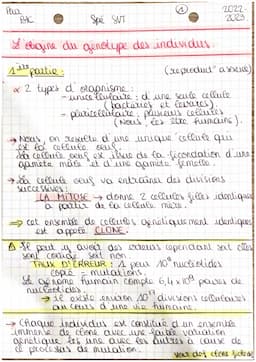 BAC Spé SVT ① 2022-
2023
L'origine du génotype des individus.
1ère partie: (reproduct° asexuée)
2 types d'organisme:
- unicellulaire: d'une seule cellule
(bactéries et levures).
- pluricellulaire: plusieurs cellules
(Nous, les être humains).
→ Nous, on résulte d'une unique cellule qui
est la cellule œuf.
La cellule œuf est issue de la fécondation d'un
gamète mâle et d'un gamète femelle.
→ La cellule œuf va entraîner des divisions
successives:
LA MITOSE → donne 2 cellules filles identiques
à partir de la cellule mère.
⇒ cet ensemble de cellules génétiquement identiques
est appelé CLONE.
⚠ Il peut y avoir des erreurs cependant soit elles
sont corrigé soit non.
TAUX D'ERREUR: 1 pour nucléotides
copié = mutations.
Le génome humain compte 6,4 x 10⁹ paires de
nucléotides.
→ il existe environ divisions cellulaires
au cours d'une vie humaine.
→ Chaque individus est constitué d'un ensemble
immense de clone avec une faible variation
génétique les uns avec les autres à cause de
ce processus de mutation.